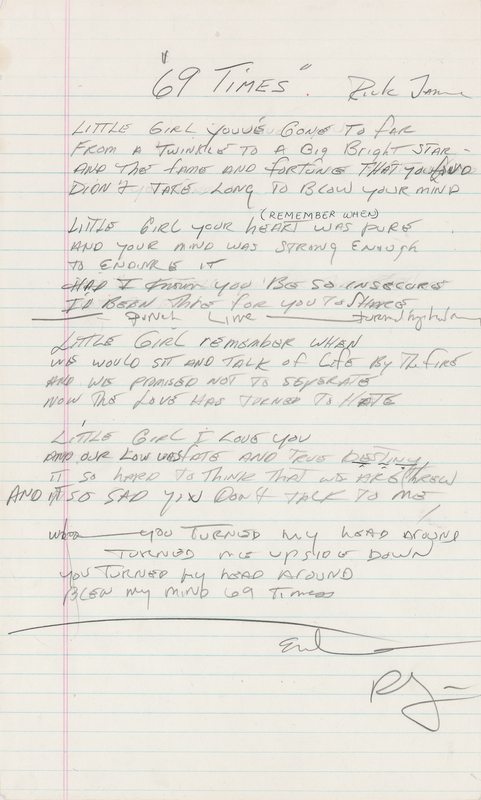 "69 TIMES". Rick James
LITTLE GIRL YOUVE GONE TO FAR
FROM A TWINKLE TO A BIG BRIGHT STAR -
AND THE FAME AND FORTUNE THAT YOU FIND
DIDN'T TAKE LONG TO BLOW YOUR MIND
(REMEMBER WHEN)
LITTLE GIRL YOUR HEART WAS PURE
AND YOUR MIND WAS STRONG ENOUGH
TO ENDURE IT
HAD I KNOW YOU BE SO INSECURE
I'D BEEN THERE FOR YOU TO SHARE
Punch Line
LITTLE GIRL REMEMBER WHEN
WE WOULD SIT AND TALK OF LIFE BY THE FIRE
AND WE PROMISED NOT TO SEPERATE
NOW THE LOVE HAS TURNED TO HATE
LITTLE GIRL I LOVE YOU
AND OUR LOW WAS FATE AND TRUE DESTINY
IT SO HARD TO THINK THAT WE ARE THREW
AND IT SO SAD YOU DON'T TALK TO ME
WHEN YOU TURNED MY HEAD AROUND
TURNED ME UPSIDE DOWN
YOU TURNED MY HEAD AROUND
BLEW MY MIND 69 TIMES
End
RJ